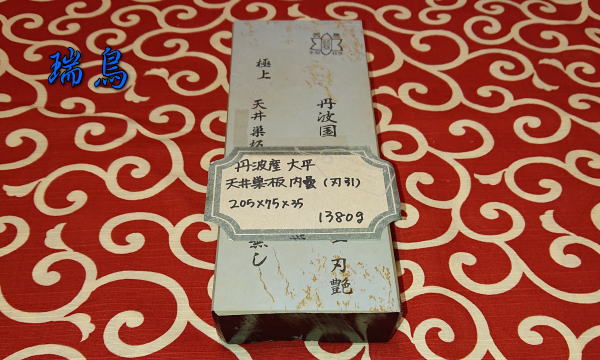 瑞鳥
丹波国
一刃艶
極上
天井巣板
無し
丹波産 大平
天井巣板内曇(刃引)
205×75×35
1380g